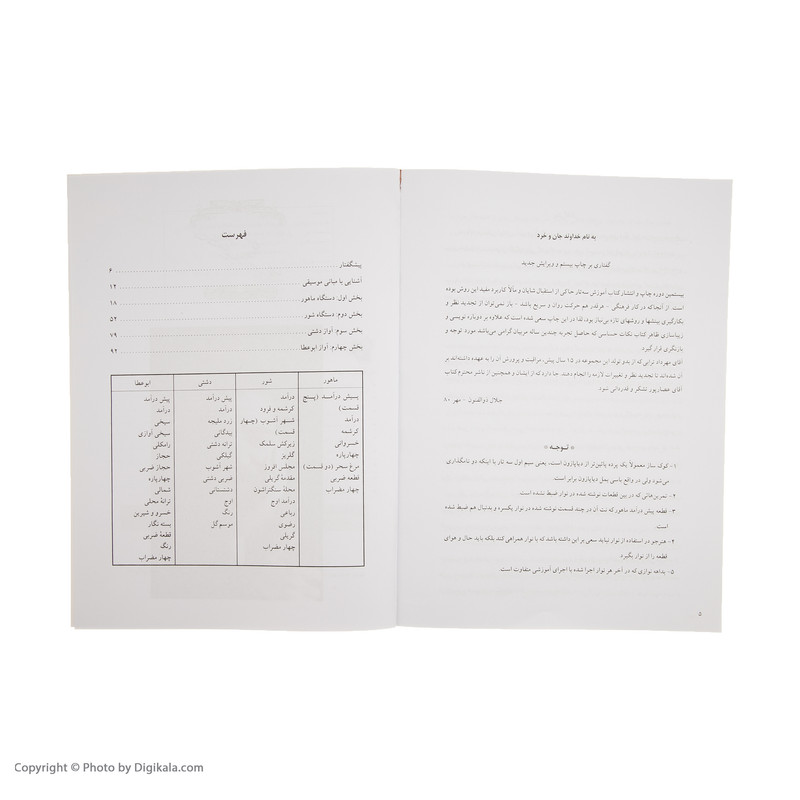 به نام خداوند جان و خرد
گفتاری بر چاپ بیستم و ویرایش جدید
بیستمین دوره چاپ و انتشار کتاب آموزش سه‌تار حاکی از استقبال شایان و مآلاً کاربرد مفید این روش بوده
است. از آنجا که در کار فرهنگی - هر قدر هم حرکت روان و سریع باشد - باز نمی‌توان از تجدید نظر و
بکارگیری بینشها و روشهای تازه بی‌نیاز بود، لذا در این چاپ سعی شده است که علاوه بر دوباره نویسی و
زیباسازی ظاهر کتاب نکات حساسی که حاصل تجربه چندین ساله مربیان گرامی می‌باشد مورد توجه و
بازنگری قرار گیرد.
آقای مهرداد ترابی که از بدو تولد این مجموعه در ۱۵ سال پیش، مراقبت و پرورش آن را به عهده داشته‌اند بر
آن شده‌اند تا تجدید نظر و تغییرات لازمه را انجام دهند. جا دارد که از ایشان و همچنین از ناشر محترم کتاب
آقای عصارپور تشکر و قدردانی شود.
جلال ذوالفنون - مهر ۸۰
* توجه *
۱- کوک ساز معمولاً یک پرده پائین‌تر از دیاپازون است، یعنی سیم اول سه تار با اینکه دو نامگذاری
می‌شود ولی در واقع باسی بمل دیاپازون برابر است.
۲- تمرین‌هائی که در بین قطعات نوشته شده در نوار ضبط نشده است
۳- قطعه پیش درآمد ماهور که نت آن در چند قسمت نوشته شده در نوار یکسره و بدنبال هم ضبط شده
است.
۴- هنرجو در استفاده از نوار نباید سعی بر این داشته باشد که با نوار همراهی کند بلکه باید حال و هوای
قطعه را از نوار بگیرد.
۵- بداهه نوازی که در آخر هر نوار اجرا شده با اجرای آموزشی متفاوت است.
۵
فهرست
پیشگفتار ۶
آشنایی با مبانی موسیقی ۱۴
بخش اول: دستگاه ماهور ۱۸
بخش دوم: دستگاه شور ۵۲
بخش سوم: آواز دشتی ۷۹
بخش چهارم: آواز ابوعطا ۹۴
ماهور
پیش درآمد (پنج
قسمت)
درآمد
کرشمه
خسروانی
چهارپاره
مرغ سحر (دو قسمت)
قطعه ضربی
چهار مضراب
شور
درآمد
کرشمه و فرود
شهر آشوب (چهار
قسمت)
زیرکش سلمک
گلریز
مجلس افروز
مقدمهٔ گریلی
محلهٔ سنگتراشون
درآمد اوج
رباعی
رضوی
گریلی
چهار مضراب
دشتی
پیش درآمد
درآمد
زرد ملیجه
بیدگانی
ترانه دشتی
گیلکی
شهر آشوب
ضربی دشتی
دشتستانی
اوج
رنگ
موسم گل
ابوعطا
پیش درآمد
درآمد
سیخی
سیخی آوازی
رامکلی
حجاز
حجاز ضربی
چهارپاره
شمالی
ترانهٔ محلی
خسرو و شیرین
بسته نگار
قطعهٔ ضربی
رنگ
چهار مضراب
Copyright © Photo by Digikala.com